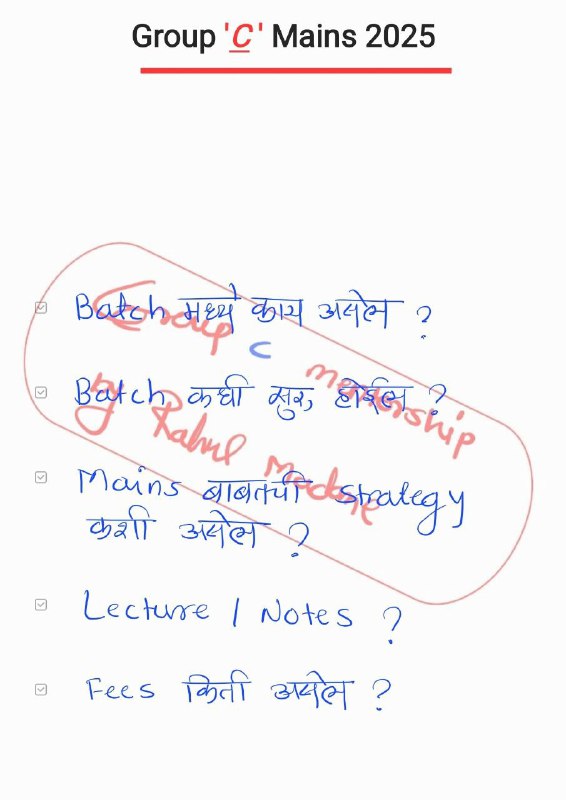 Group 'C' Mains 2025
Batch मध्ये काय असेल ?
Batch कधी सुरु होईल ?
Mains बाबतची strategy
कशी असेल ?
Lecture / Notes ?
Fees किती असेल ?
Group C mentorship
by Rahul